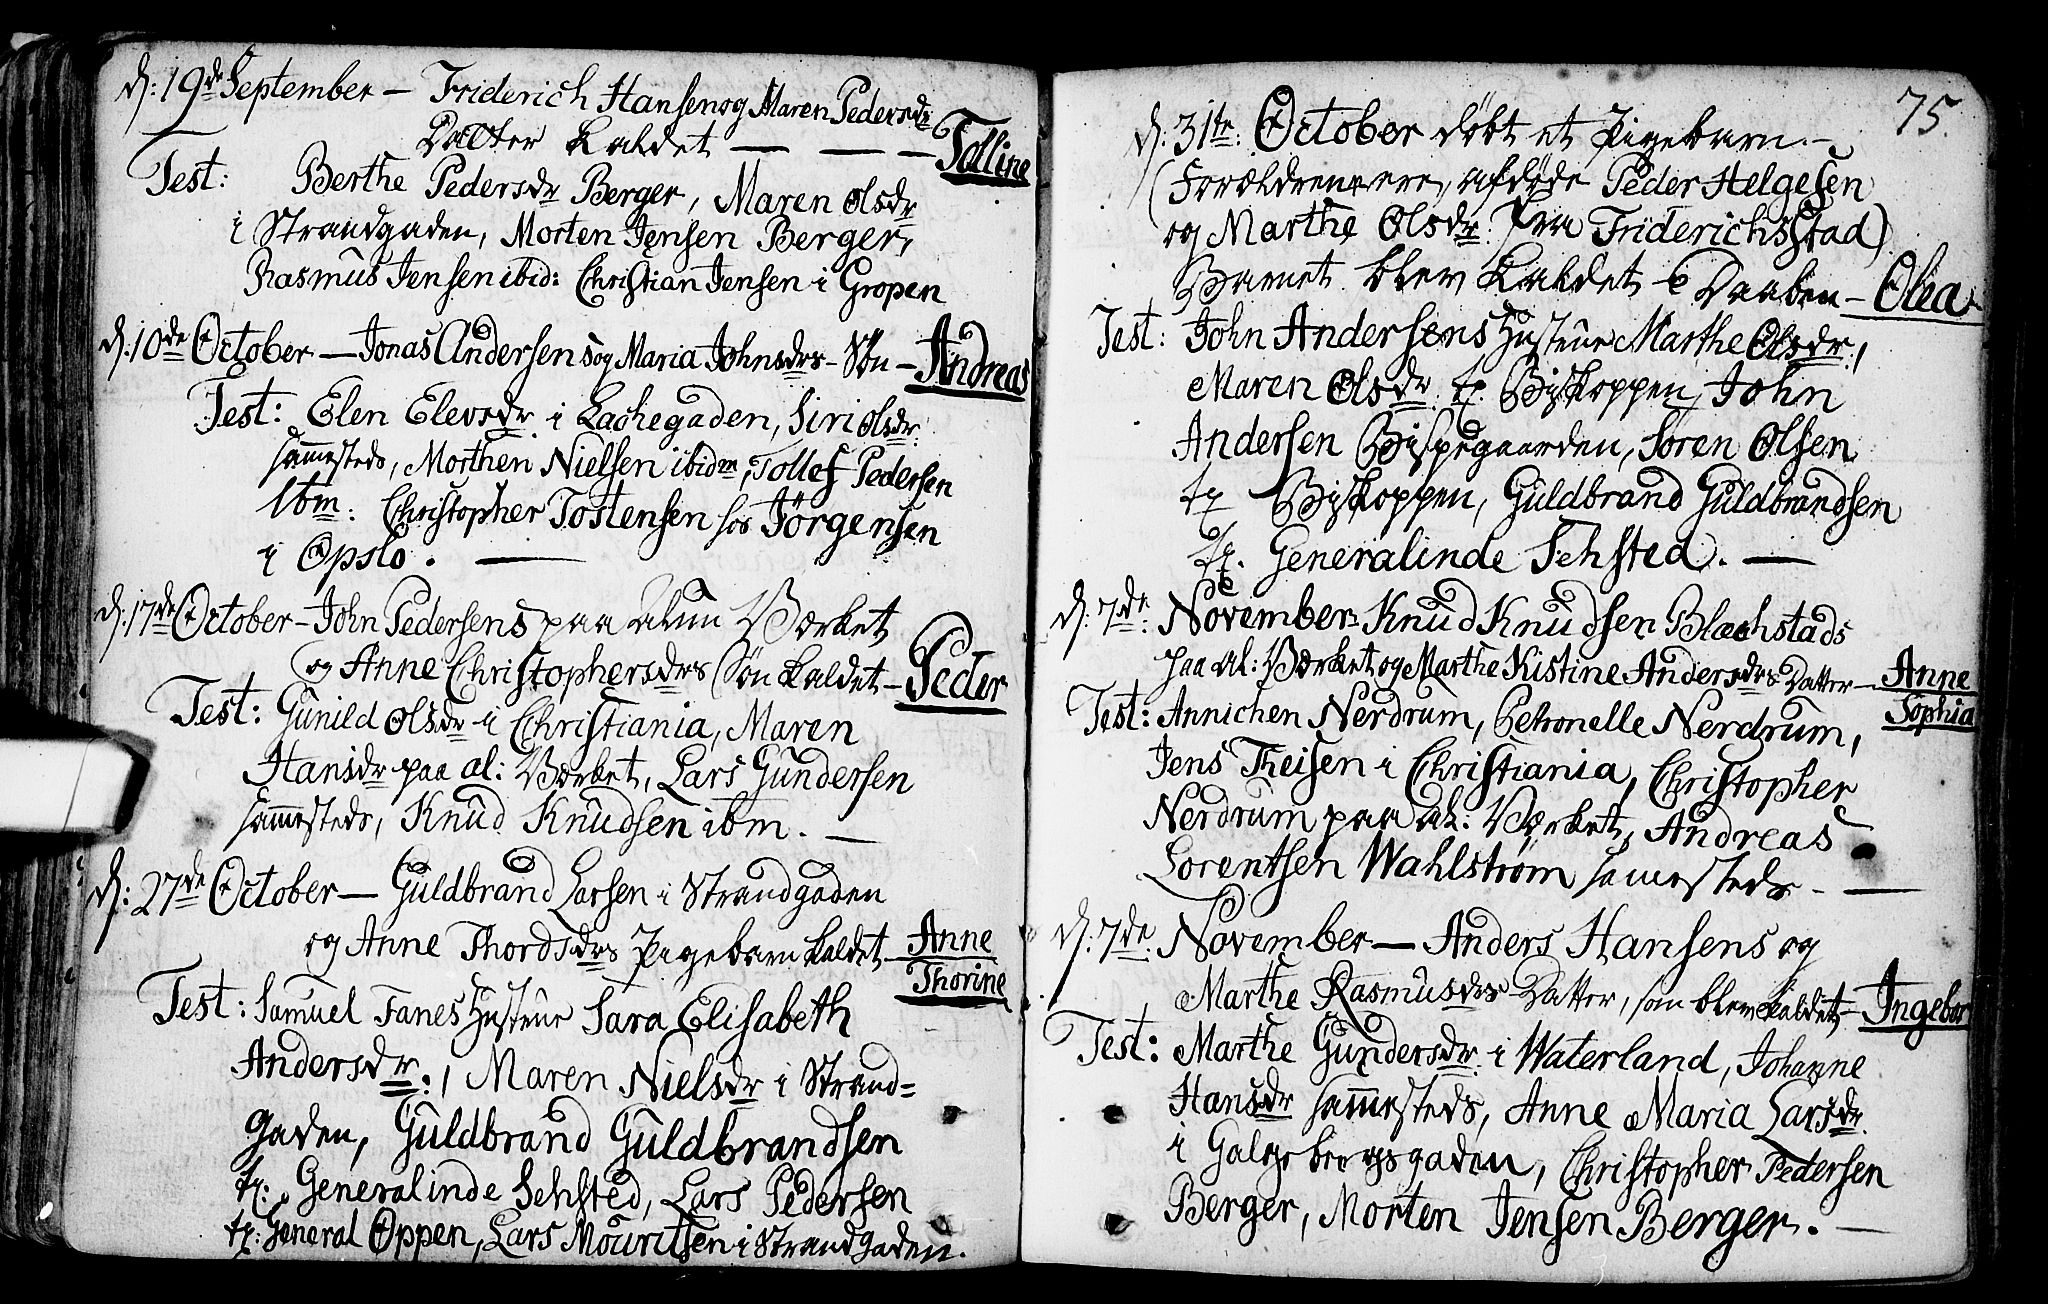 d: 19de September – Friderich Hansen og Maren Pedersdr
Datter kaldet — — — Tolline
Test: Berthe Pedersdr Berger, Maren Olsdr
i Strandgaden, Morten Jensen Berger,
Rasmus Jensen ibid: Christian Jensen i Gropen
d: 10de October — Jonas Andersens og Maria Johnsdrs – Søn – Andreas
Test: Elen Elevsdr i Lachegaden, Siri Olsdr:
sammesteds, Morthen Nielsen ibidm, Tollef Pedersen
Ibm: Christopher Tostensen hos Jörgensen
i Opslo. —
d: 17de October – John Pedersens paa Alun Værket
og Anne Christophersdrs Søn kaldet – Peder
Test: Gunild Olsdr i Christiania, Maren
Hansdr paa al: Værket, Lars Gundersen
sammesteds, Knud Knudsen ibm. —
d: 27de October — Guldbrand Larsen i Strandgaden
og Anne Thordsdrs Pigebarn kaldet – Anne
Thorine
Test: Samuel Fanes Hustrue Sara Elisabeth
Andersdr:, Maren Nielsdr i Strand=
gaden, Guldbrand Guldbrandsen
tj: Generalinde Sehsted, Lars Pedersen
tj: General Oppen, Lars Mouritsen i Strandgaden.
75.
d: 31te: October döbt et Pigebarn. –
(Forældrene ere, afdöde Peder Helgesen
og Marthe Olsdr: fra Friderichsstad)
Barnet blev kaldet i Daaben – Olea
Test: John Andersens Hustrue Marthe Olsdr:,
Maren Olsdr tj. Biskoppen, John
Andersen Bispegaarden, Sören Olsen
tj Biskoppen, Guldbrand Guldbrandsen
tj. Generalinde Sehsted. —
d: 7de: November Knud Knudsen Blachstads
paa Al: Værket og Marthe Kistine Andersdrs Datter – Anne
Sophia
Test: Annichen Nerdrum, Petronelle Nerdrum,
Jens Theisen i Christiania, Christopher
Nerdrum paa al: Værket, Andreas
Lorentsen Wahlström samesteds – —
d: 7de November — Anders Hansens og
Marthe Rasmusdrs Datter, som blev kaldet – Ingebor
Test: Marthe Gundersdr i Waterland, Johanne
Hansdr sammesteds, Anne Maria Larsdr.
i Galgebergsgaden, Christopher Pedersen
Berger, Morten Jensen Berger. —